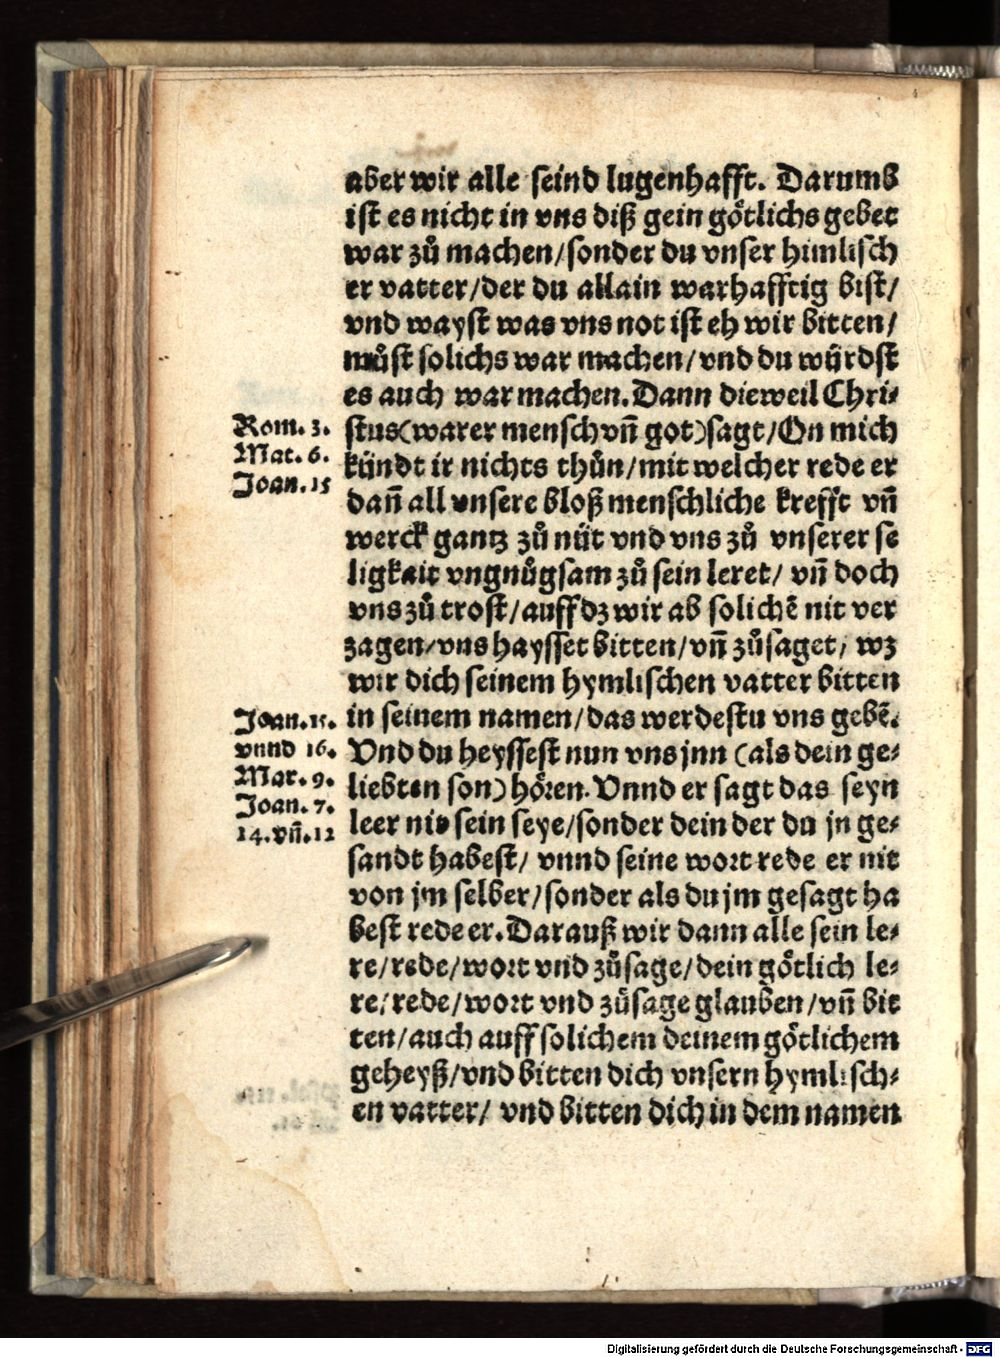 aber wir alle seind lugenhafft. Darumb
ist es nicht in vns diß gein götlichs gebet
war zů machen/sonder du vnser himlisch
er vatter/der du allain warhafftig bist/
vnd wayst was vns not ist eh wir bitten/
můst solichs war machen/vnd du würdst
es auch war machen. Dann dieweil Chri-
stus(warer mensch vn̄ got)sagt/On mich
kündt ir nichts thůn/mit welcher rede er
dan̄ all vnsere bloß menschliche krefft vn̄
werck gantz zů nüt vnd vns zů vnserer se
ligkait vngnůgsam zů sein leret/ vn̄ doch
vns zů trost/auff dz wir ab solichē nit ver
zagen/vns haysset bitten/vn̄ zůsaget/ wz
wir dich seinem hymlischen vatter bitten
in seinem namen/das werdestu vns gebē.
Vnd du heyssest nun vns jnn (als dein ge-
liebten son)hören. Vnnd er sagt das seyn
leer nit sein seye/sonder dein der du jn ge-
sandt habest/ vnnd seine wort rede er nit
von jm selber/sonder als du jm gesagt ha
best rede er. Darauß wir dann alle sein le-
re/rede/wort vnd zůsage/dein götlich le-
re/rede/wort vnd zůsage glauben/vn̄ bit
ten/auch auff solichem deinem götlichem
geheyß/vnd bitten dich vnsern hymlisch-
en vatter/ vnd bitten dich in dem namen
Rom. 3.
Mat. 6.
Joan. 15
Joan. 15.
vnnd 16.
Mar. 9.
Joan. 7.
14. vn̄. 12
Digitalisierung gefördert durch die Deutsche Forschungsgemeinschaft - DFG